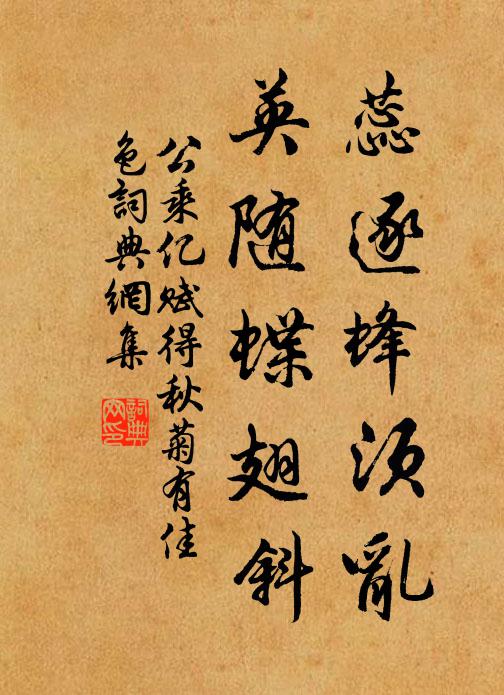 蕊逐蜂须亂
英随蝶翅斜
公乘亿赋得秋菊有佳
色詞典網集
詞典網印